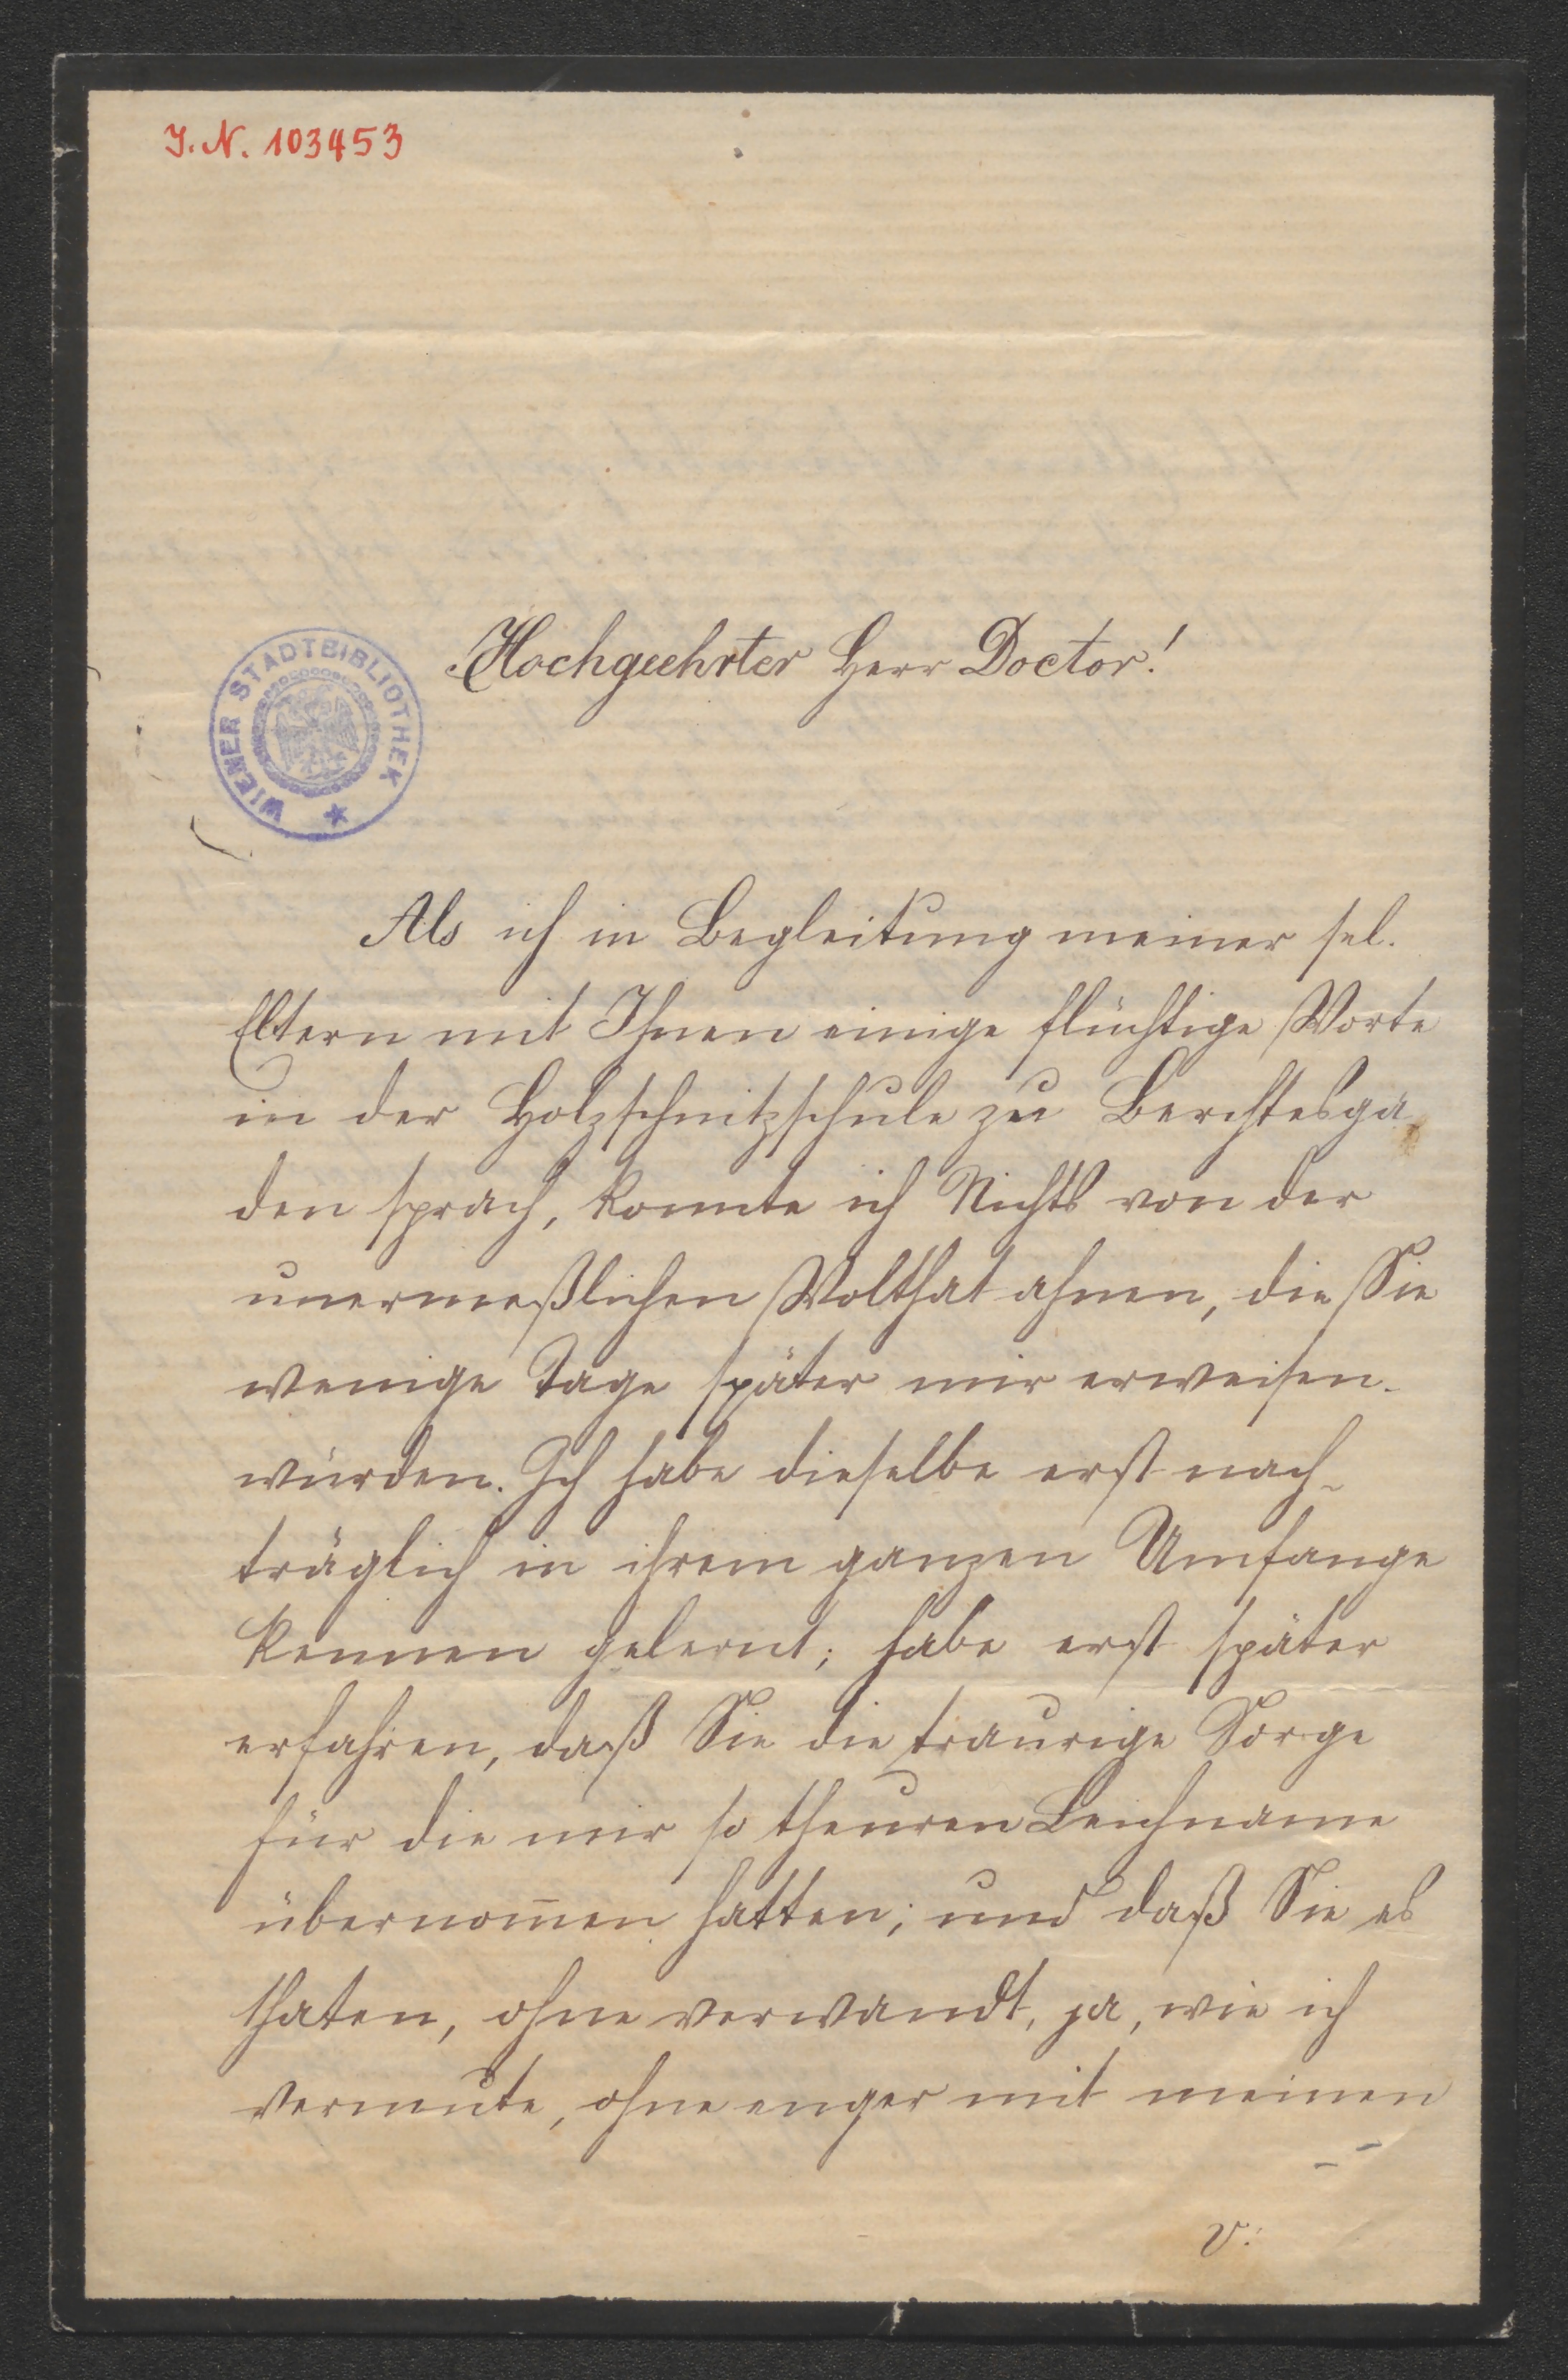 J. N. 103453
WIENER STADTBIBLIOTHEK
Hochgeehrter Herr Doctor!
Als ich in Begleitung meiner sel.
Eltern mit Ihnen einige flüchtige Worte
in der Holzschnitzschule zu Berchtesga-
den sprach, konnte ich Nichts von der
unermeßlichen Wolthat ahnen, die Sie
wenige Tage später mir erweisen
würden. Ich habe dieselbe erst nach-
träglich in ihrem ganzen Umfange
kennen gelernt; habe erst später
erfahren, daß Sie die traurige Sorge
für die mir so theuren Leichname
übernom̄en hatten; und daß Sie es
thaten, ohne verwandt, ja, wie ich
vermute, ohne enger mit meinen
v: